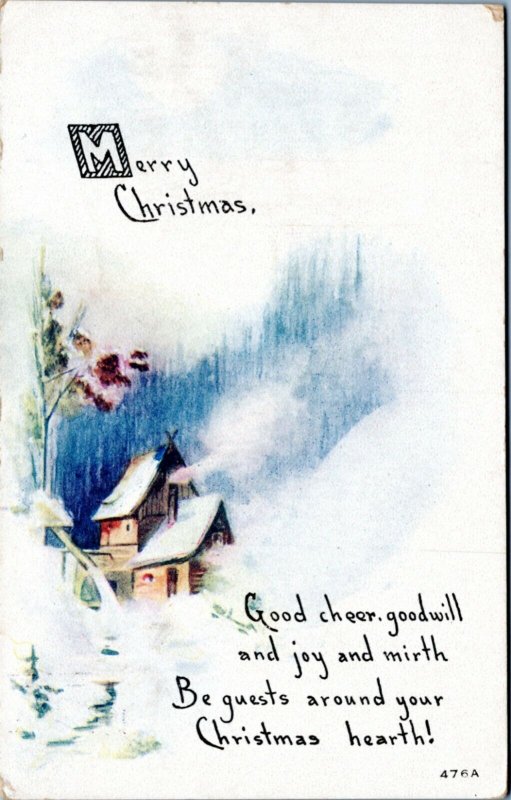 Merry
Christmas.
Good cheer. goodwill
and joy and mirth
Be guests around your
Christmas hearth!
476A